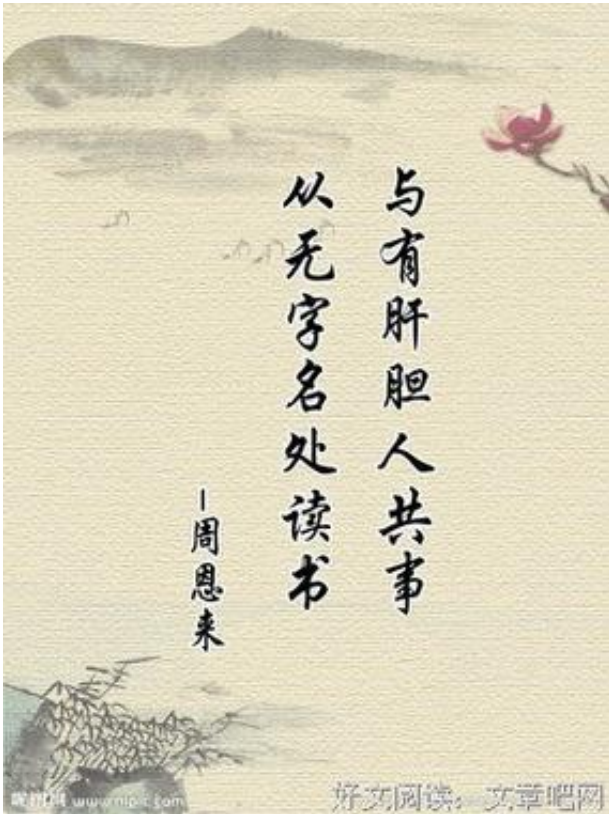 与有肝胆人共事
从无字名处读书
-周恩来
昵图网 www.nipic.com
好文阅读:文章吧网